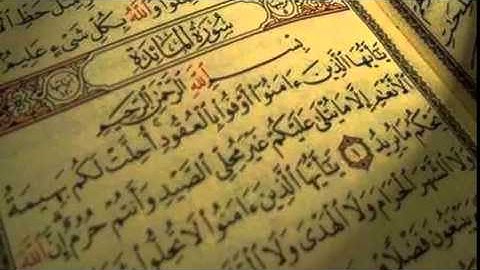 حظ
والله بكل شيء عليم
سورة المائدة
بسم الله الرحمن الرحيم
يَٰٓأَيُّهَا الَّذِينَ ءَامَنُوٓا أَوْفُوا بِالْعُقُودِ أُحِلَّتْ لَكُم بَهِيمَةُ
الْأَنْعَٰمِ إِلَّا مَا يُتْلَىٰ عَلَيْكُمْ غَيْرَ مُحِلِّي الصَّيْدِ وَأَنتُمْ حُرُمٌ إِنَّ اللَّهَ
يَحْكُمُ مَا يُرِيدُ ١ يَٰٓأَيُّهَا الَّذِينَ ءَامَنُوا لَا تُحِلُّوا
وَلَا الشَّهْرَ الْحَرَامَ وَلَا الْهَدْيَ وَلَا
يَبْتَغُونَ فَضْلًا